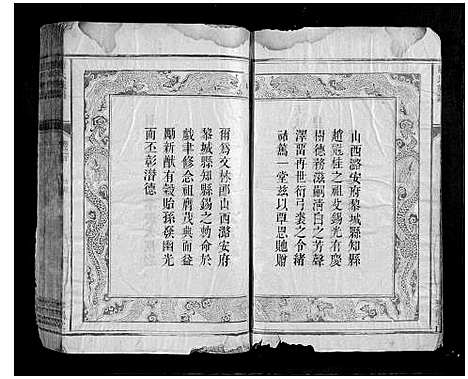 山西潞安府黎城縣知縣
趙冠桂之祖父錫光有慶
樹德務滋嗣清白之芳聲
澤萬再世衍弓裘之令緒
祜篤一堂茲以覃恩貤贈
爾為文林郎山西潞安府
黎城縣知縣錫之勅命於
戲聿修念祖膺茂典而益
勵新猷有穀貽孫發幽光
而丕彰潛德